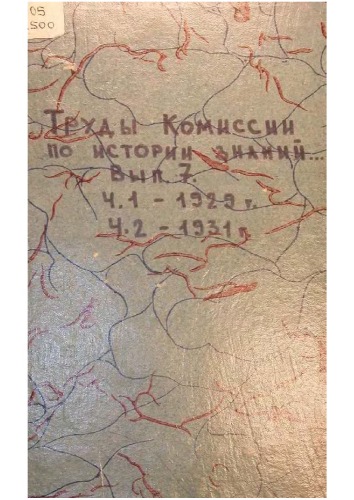 05
500
Труды Комиссии
по истории знаний...
Вып. 7.
Ч.1 - 1929 г.
Ч.2 - 1931 г.